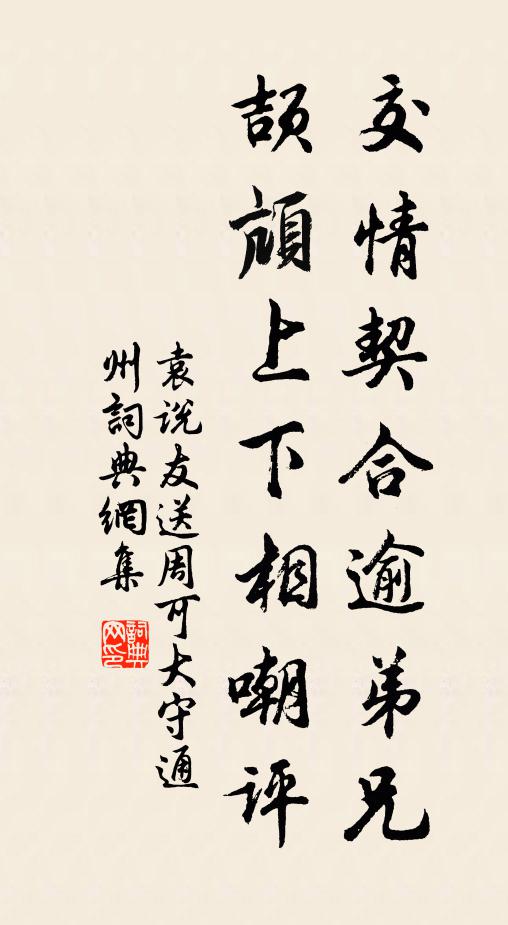 交情契合逾弟兄
頡頏上下相嘲評
袁说友送周可大守通
州詞典網集
詞典网印